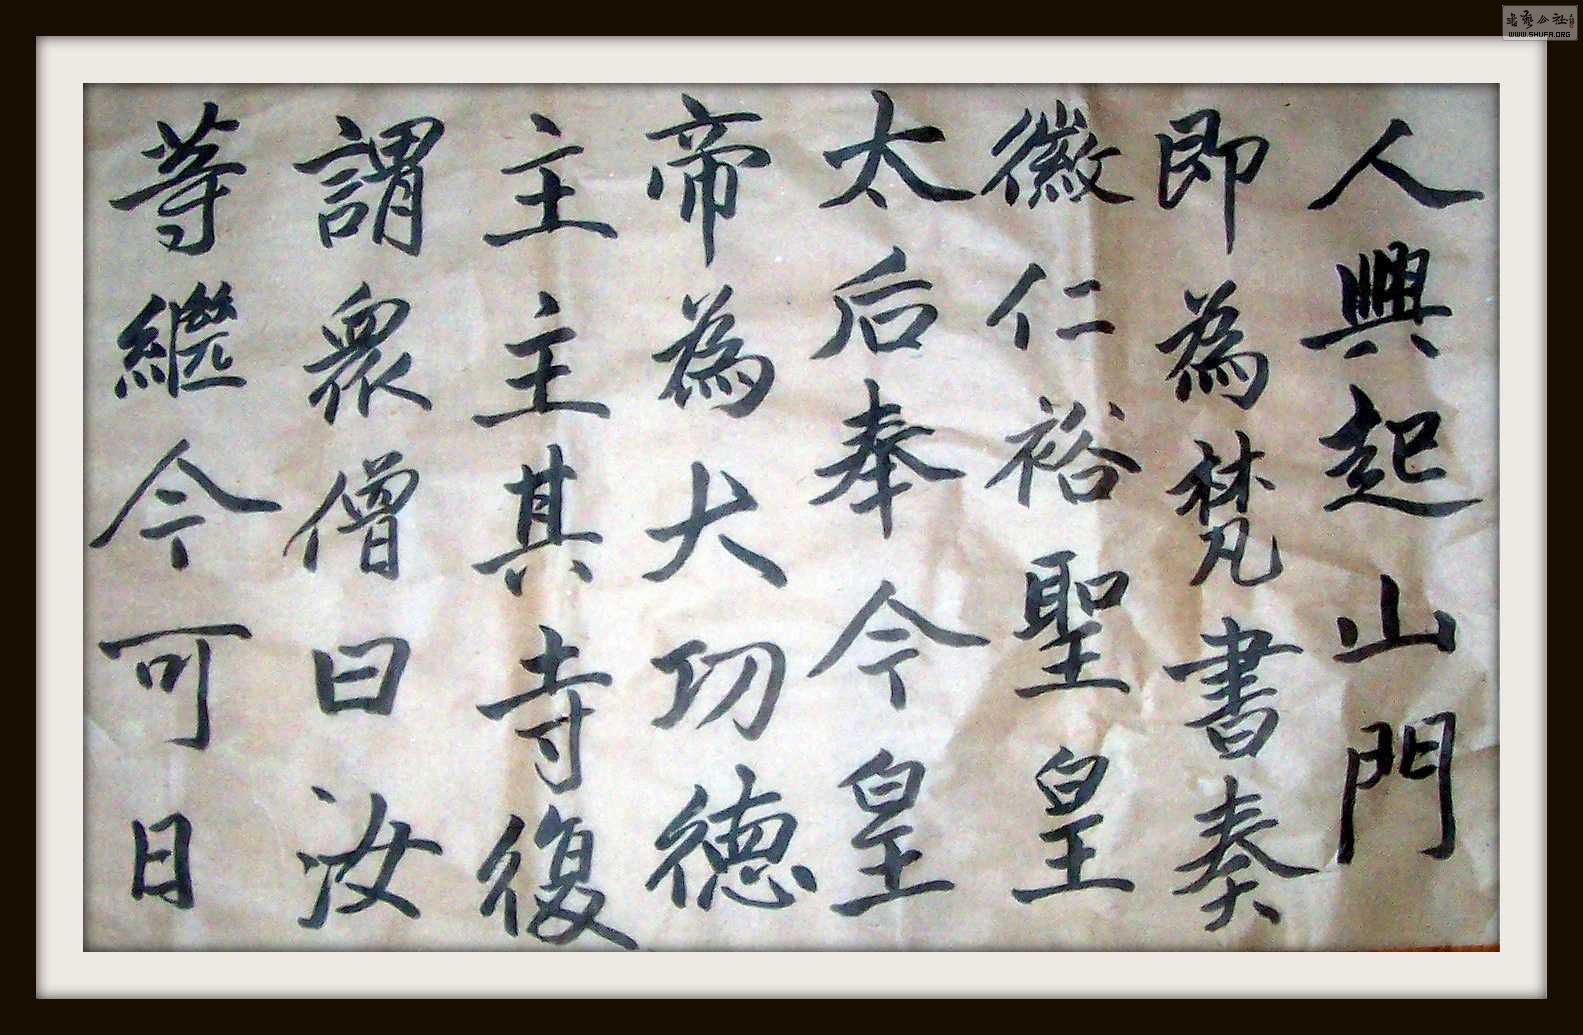 人興起山門
即為梵書奏
徽仁裕聖皇
太后奉今皇
帝為大功德
主主其寺復
謂眾僧曰汝
等繼今可日
書藝公社
WWW.SHUFA.ORG